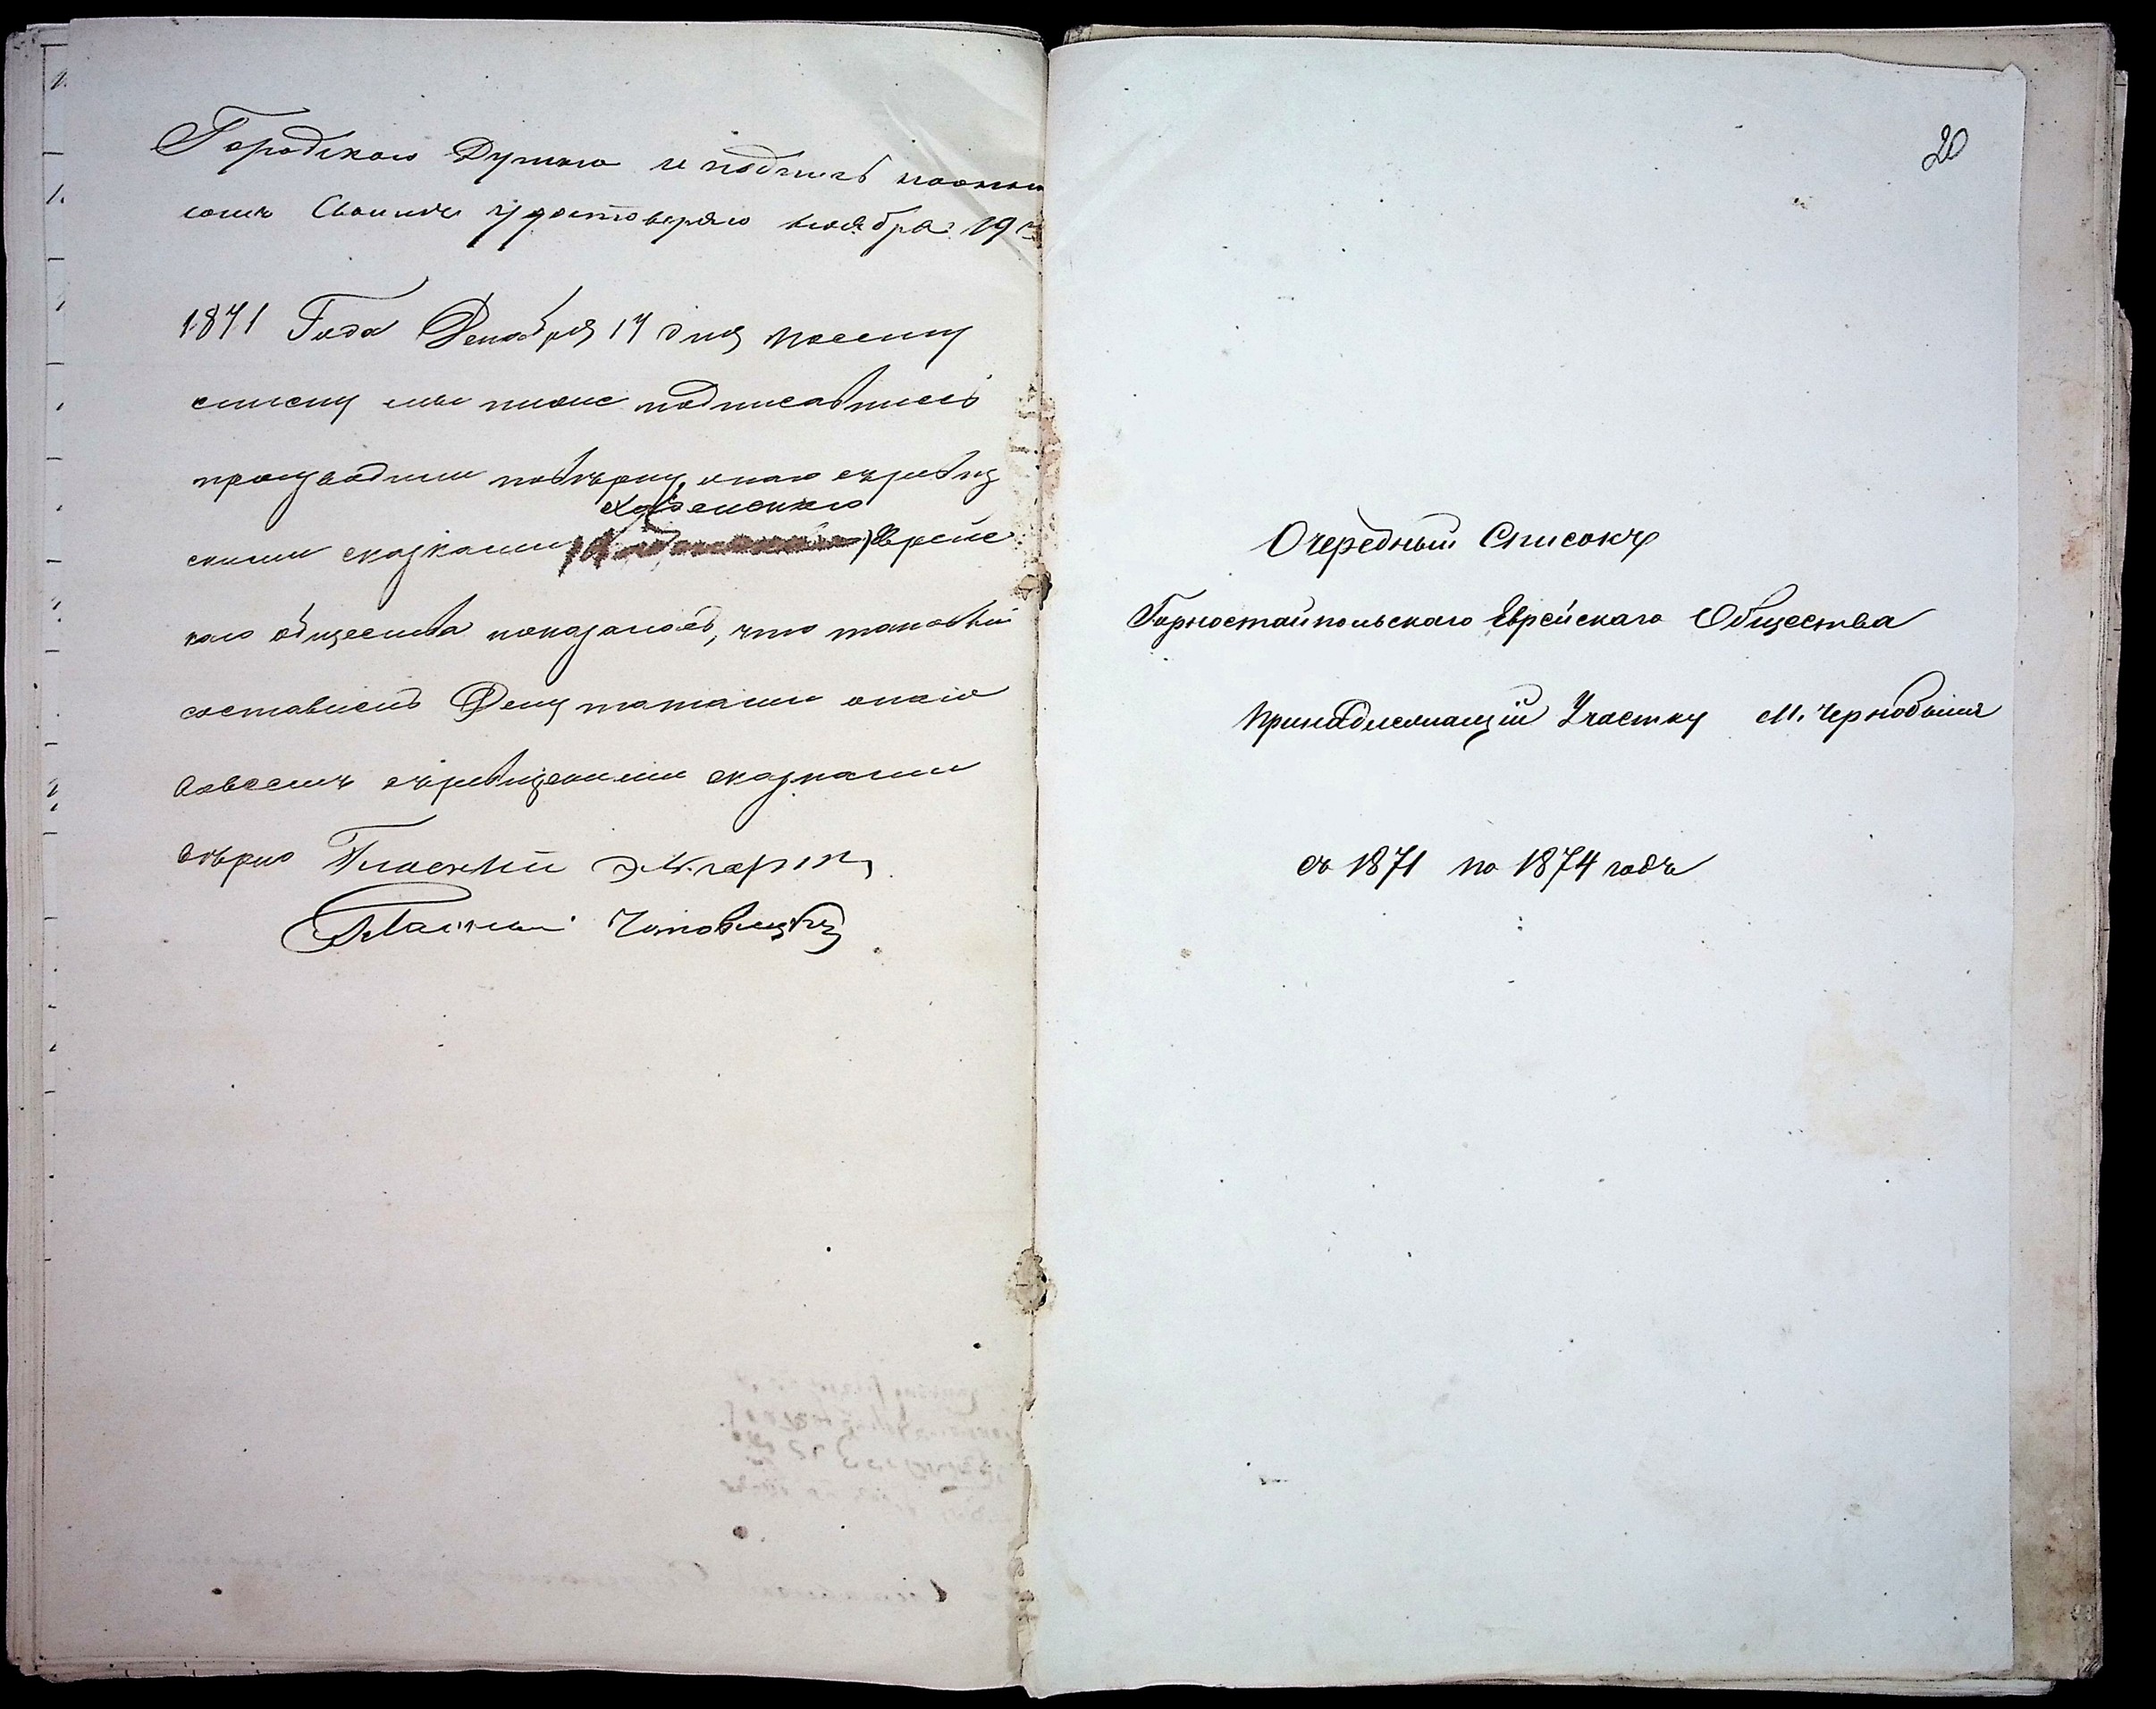 Городскою Думою и подпись
Своимъ удостоверяю ноября 19
1871 Года Декабря 17 дня посему
списку мы ниже подписавшиесь
производили повѣрку оного съ ревиз
Хабенского
скими сказками Еврейс
кого общества показалось, что таковый
составленъ Депутатами оного
совсемъ съ ревизскими сказками
вѣрно Гласный
Гласный
20
Очередный Списокъ
Горностайпольскаго Еврейскаго Общества
принадлежащій Участку М. Чернобыля
съ 1871 по 1874 годъ